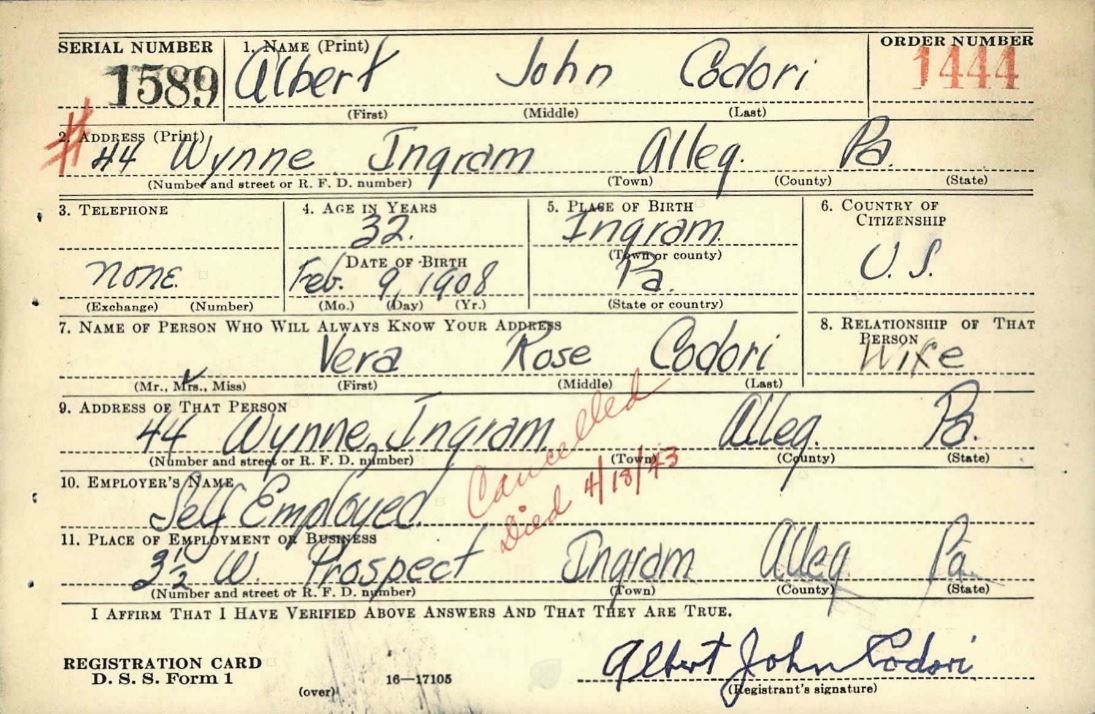 SERIAL NUMBER 1. NAME (Print) ORDER NUMBER
1589 Albert John Codori 1444
(First) (Middle) (Last)
2. ADDRESS (Print)
# 44 Wynne Ingram Alleg. Pa.
(Number and street or R. F. D. number) (Town) (County) (State)
3. TELEPHONE 4. AGE IN YEARS 5. PLACE OF BIRTH 6. COUNTRY OF
CITIZENSHIP
32. Ingram
DATE OF BIRTH (Town or county) U. S.
None. Feb. 9, 1908 Pa.
(Exchange) (Number) (Mo.) (Day) (Yr.) (State or country)
7. NAME OF PERSON WHO WILL ALWAYS KNOW YOUR ADDRESS 8. RELATIONSHIP OF THAT
PERSON
Vera Rose Codori Wife
(Mr., Mrs., Miss) (First) (Middle) (Last)
9. ADDRESS OF THAT PERSON
44 Wynne, Ingram Alleg. Pa.
(Number and street or R. F. D. number) (Town) (County) (State)
Cancelled
Died 4/18/43
10. EMPLOYER'S NAME
Self Employed.
11. PLACE OF EMPLOYMENT OR BUSINESS
3½ W. Prospect Ingram Alleg Pa.
(Number and street or R. F. D. number) (Town) (County) (State)
I AFFIRM THAT I HAVE VERIFIED ABOVE ANSWERS AND THAT THEY ARE TRUE.
REGISTRATION CARD Albert John Codori
D. S. S. Form 1 (over) 16—17105 (Registrant's signature)